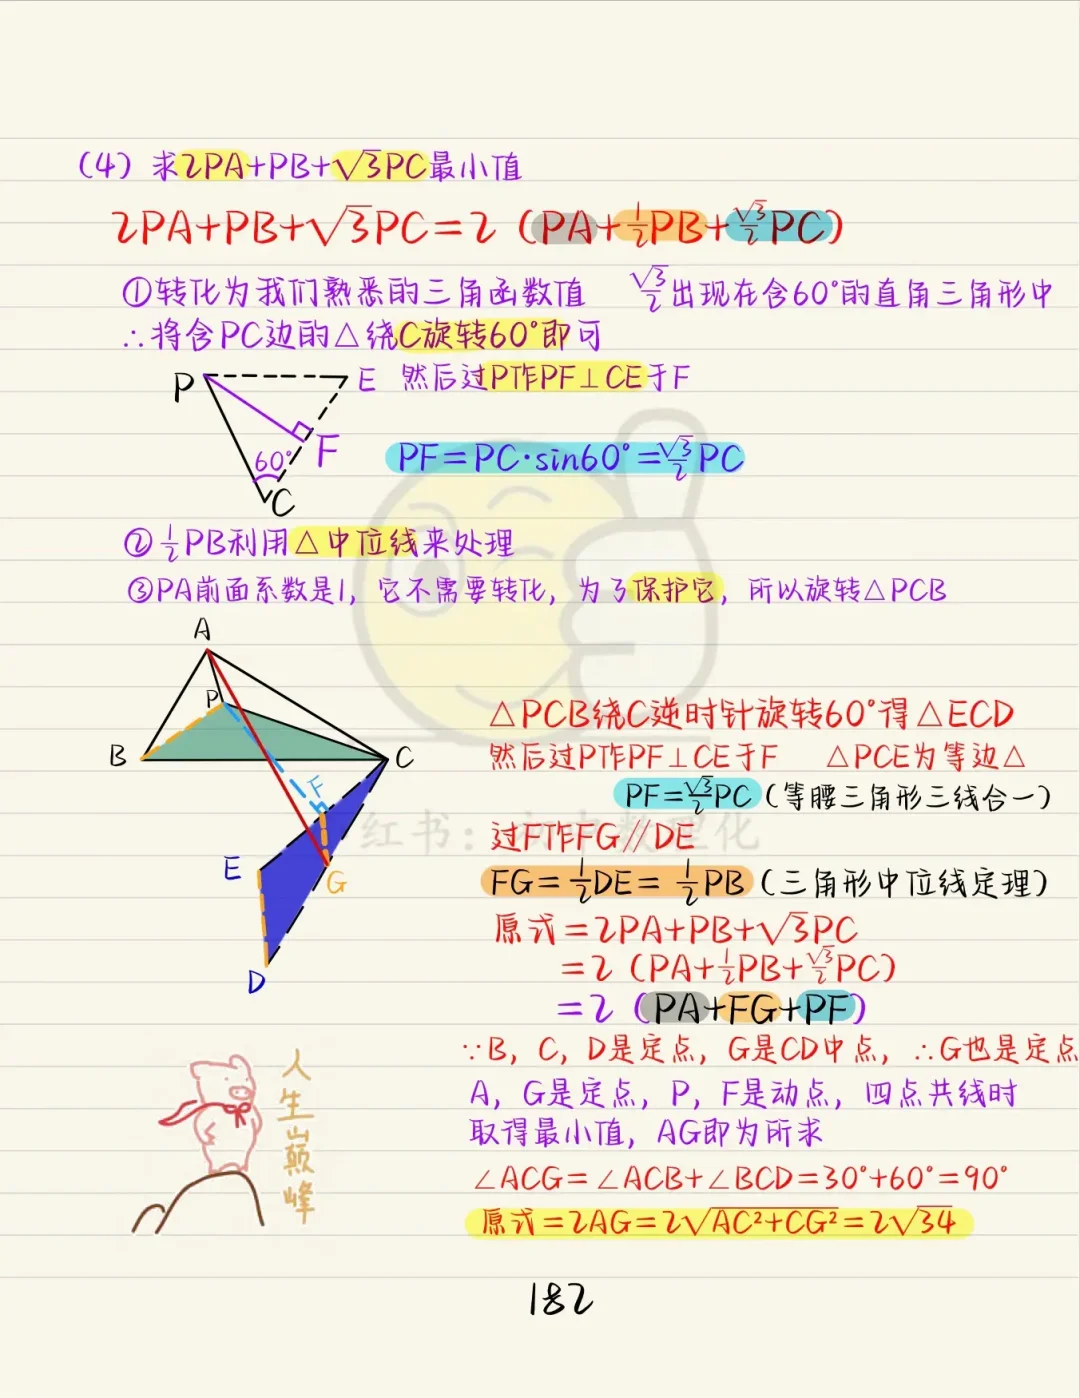 (4) 求2PA+PB+√3PC最小值
2PA+PB+√3PC=2（PA+½PB+√3/2PC）
①转化为我们熟悉的三角函数值 √3/2出现在含60°的直角三角形中
∴将含PC边的△绕C旋转60°即可
P E 然后过P作PF⊥CE于F
60° F PF=PC·sin60°=√3/2PC
C
②½PB利用△中位线来处理
③PA前面系数是1，它不需要转化，为了保护它，所以旋转△PCB
A
P
B C
F
E G
D
△PCB绕C逆时针旋转60°得△ECD
然后过P作PF⊥CE于F △PCE为等边△
PF=√3/2PC（等腰三角形三线合一）
红书：初中数理化
过F作FG∥DE
FG=½DE=½PB（三角形中位线定理）
原式=2PA+PB+√3PC
=2（PA+½PB+√3/2PC）
=2（PA+FG+PF）
∵B，C，D是定点，G是CD中点，∴G也是定点
A，G是定点，P，F是动点，四点共线时
取得最小值，AG即为所求
∠ACG=∠ACB+∠BCD=30°+60°=90°
原式=2AG=2√AC²+CG²=2√34
人生巅峰
182